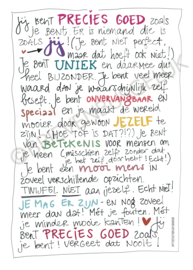 jij bent PRECIES GOED zoals
je bent. Er is niemand die is
zoals jij! (Je bent niet perfect,
maar dat hoeft ook niet!)
Je bent UNIEK en daarmee dus
heel BIJZONDER. Je bent veel meer
waard dan je waarschijnlijk zelf
beseft. Je bent ONVERVANGBAAR en
speciaal en je maakt de wereld
mooier door gewoon JEZELF te
zijn! (HOE TOF IS DAT?!?) Je bent
van BETEKENIS voor mensen om
je heen (misschien zelfs zonder dat
je het zelf door hebt! Echt!)
Je bent een mooi mens in
zoveel verschillende opzichten.
TWIJFEL NIET aan jezelf. Echt niet!
JE MAG ER ZIJN - en nog zoveel
meer dan dat! Mét je fouten. Mét
je minder mooie kanten! Jij
bent PRECIES GOED zoals
je bent! Vergeet dat nooit.